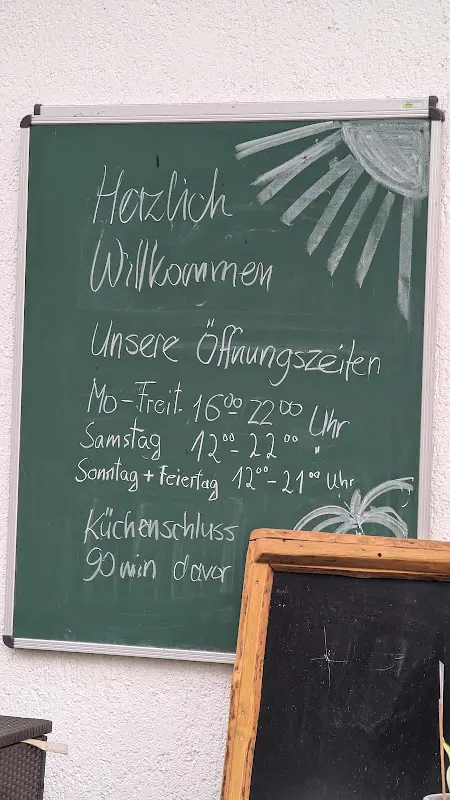 Herzlich
Willkommen
Unsere Öffnungszeiten
Mo-Freit. 16⁰⁰-22⁰⁰ Uhr
Samstag 12⁰⁰-22⁰⁰ "
Sonntag + Feiertag 12⁰⁰-21⁰⁰ Uhr
Küchenschluss
90 min davor